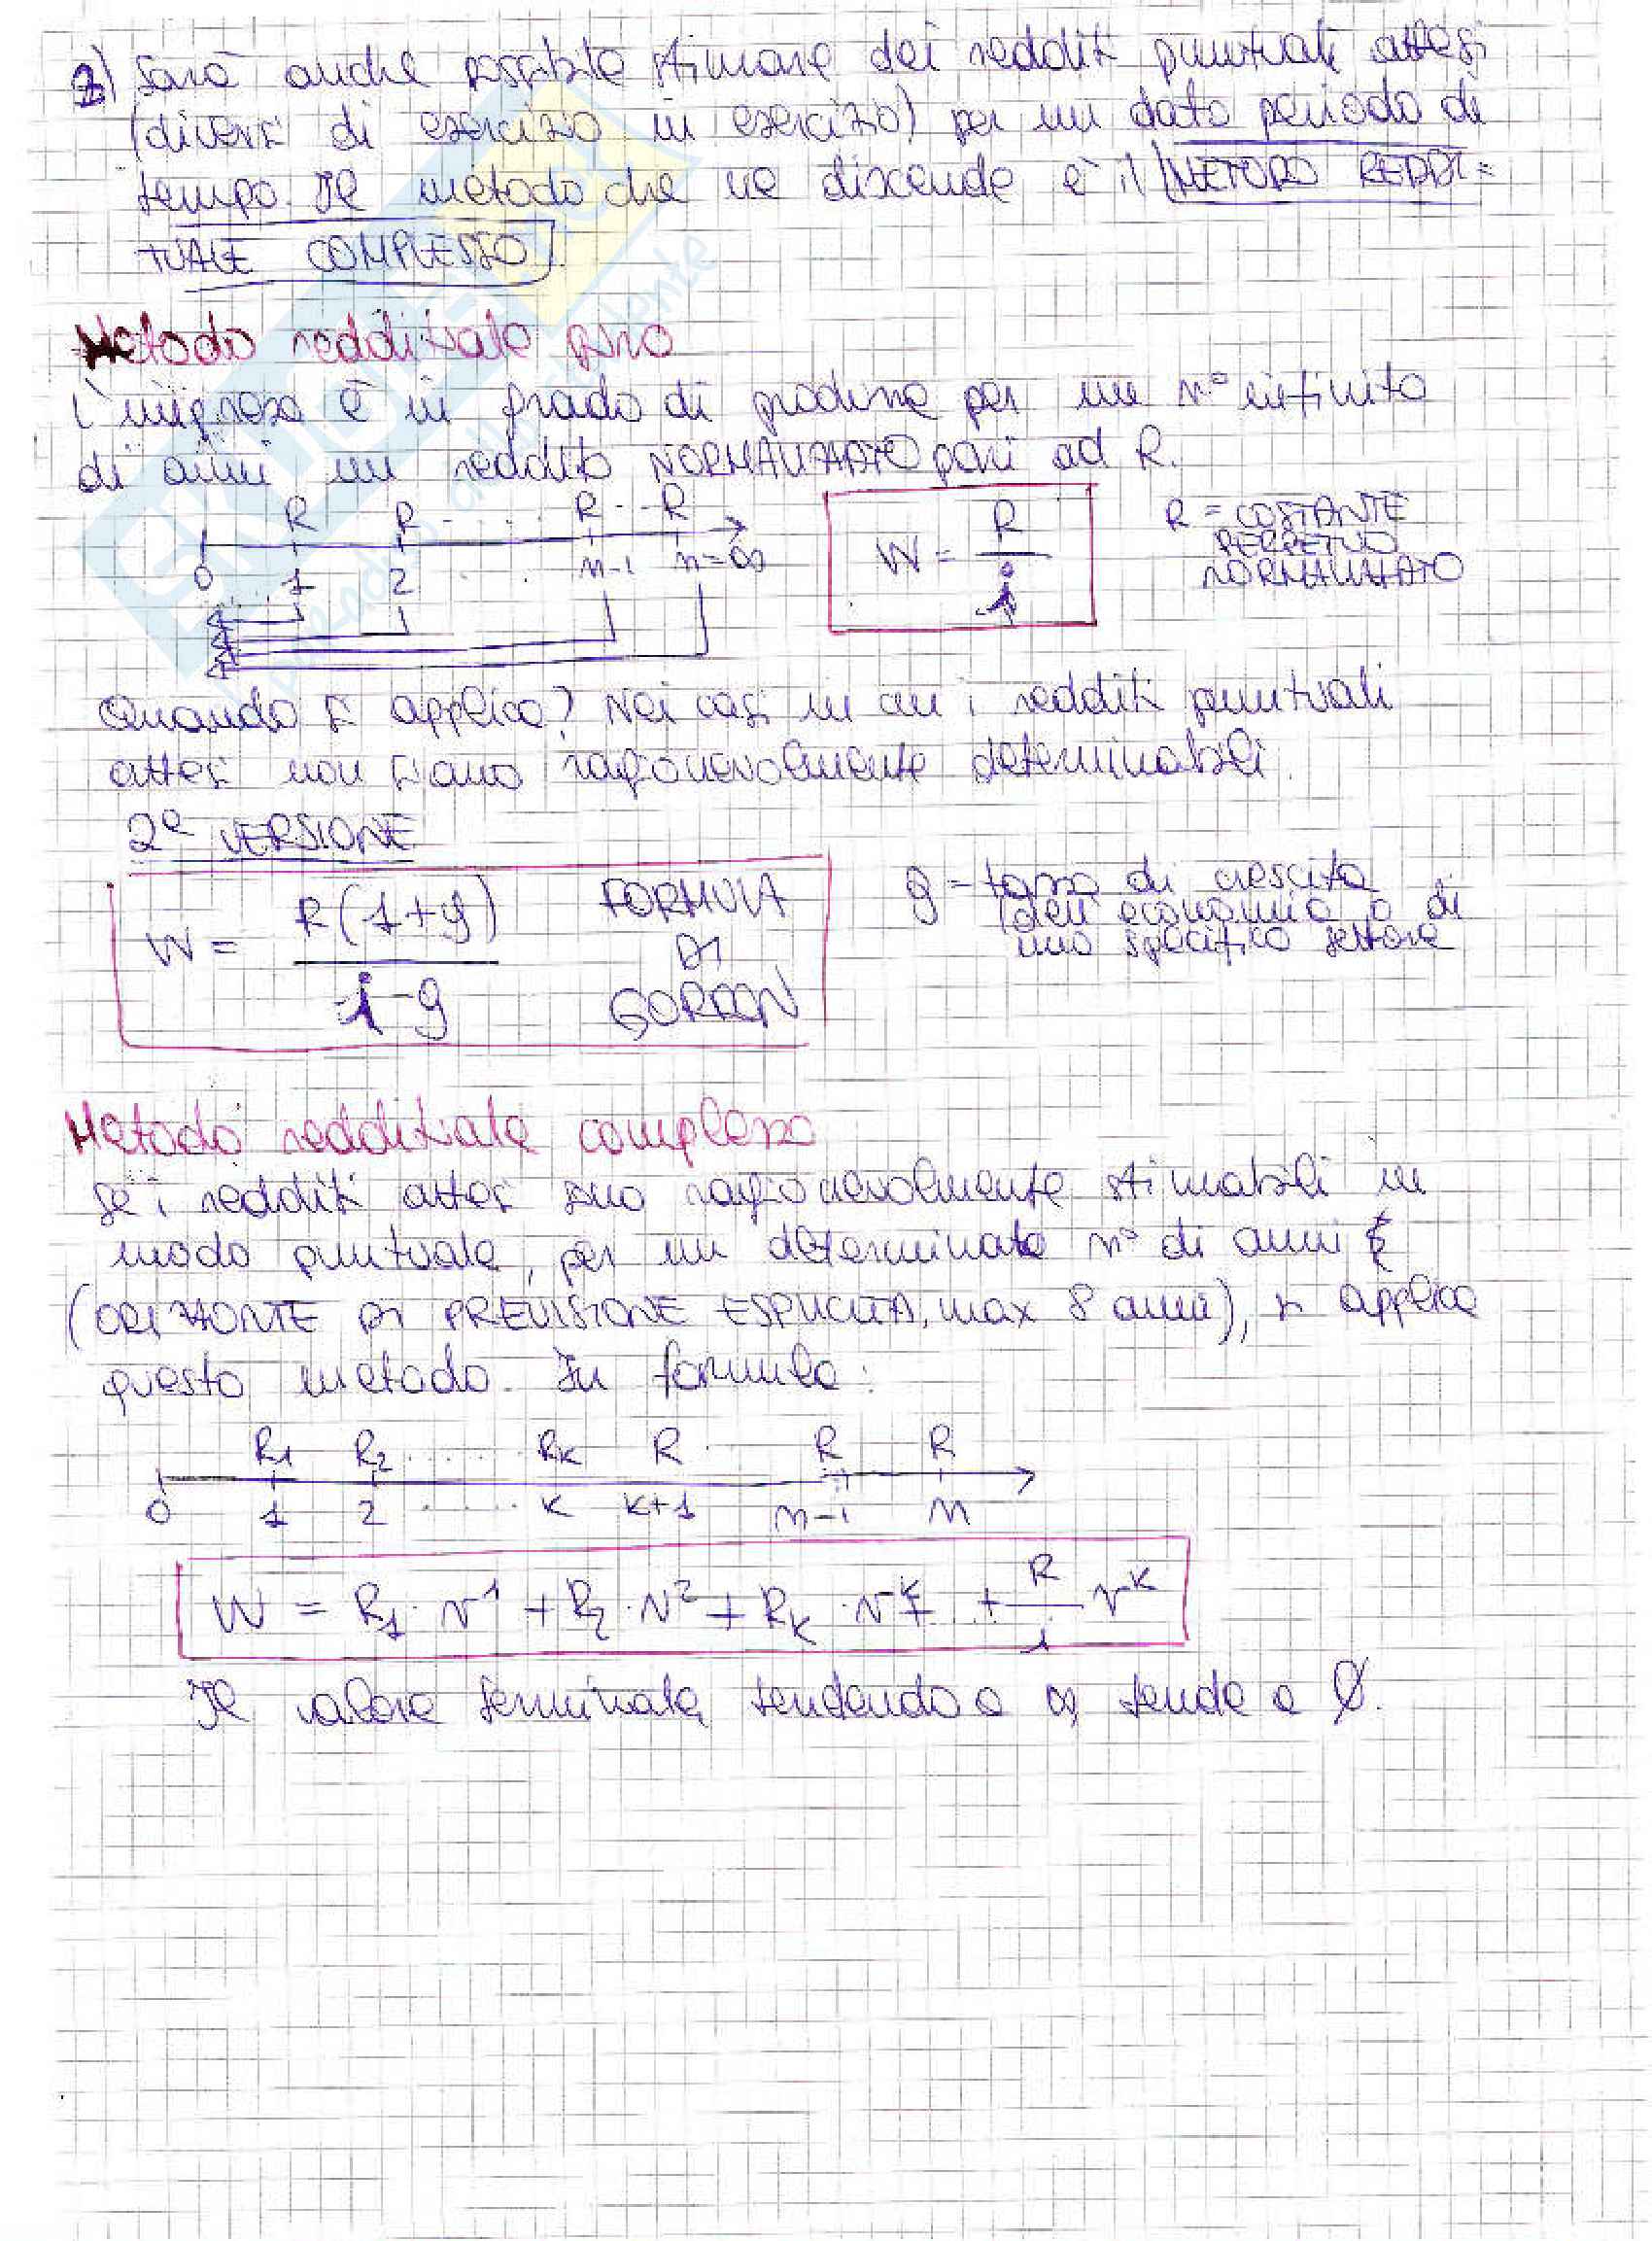 2) Sarà anche possibile stimare dei redditi puntuali attesi
(diversi di esercizio in esercizio) per un dato periodo di
tempo. Il metodo che ne discende è il METODO REDDI=
TUALE COMPLESSO.
Metodo reddituale puro
L'impresa è in grado di produrre per un n° infinito
di anni un reddito NORMALIZZATO pari ad R.
R R ..... R .. R
0 1 2 ..... n-1 n=∞
W = R / i
R = COSTANTE
PERPETUO
NORMALIZZATO
Quando si applica? Nei casi in cui i redditi puntuali
attesi non siano ragionevolmente determinabili.
2ª VERSIONE
W = R(1+g) / i-g
FORMULA
DI
GORDON
g = tasso di crescita
dell'economia o di
uno specifico settore
Metodo reddituale complesso
Se i redditi attesi sono ragionevolmente stimabili in
modo puntuale, per un determinato n° di anni
(ORIZZONTE DI PREVISIONE ESPLICITA, max 8 anni), si applica
questo metodo. In formula:
R1 R2 ..... Rk R R R
0 1 2 ..... k k+1 n-1 n
W = R1 · v^1 + R2 · v^2 + Rk · v^k + R/i v^k
Il valore terminale, tendendo a ∞, tende a Ø.